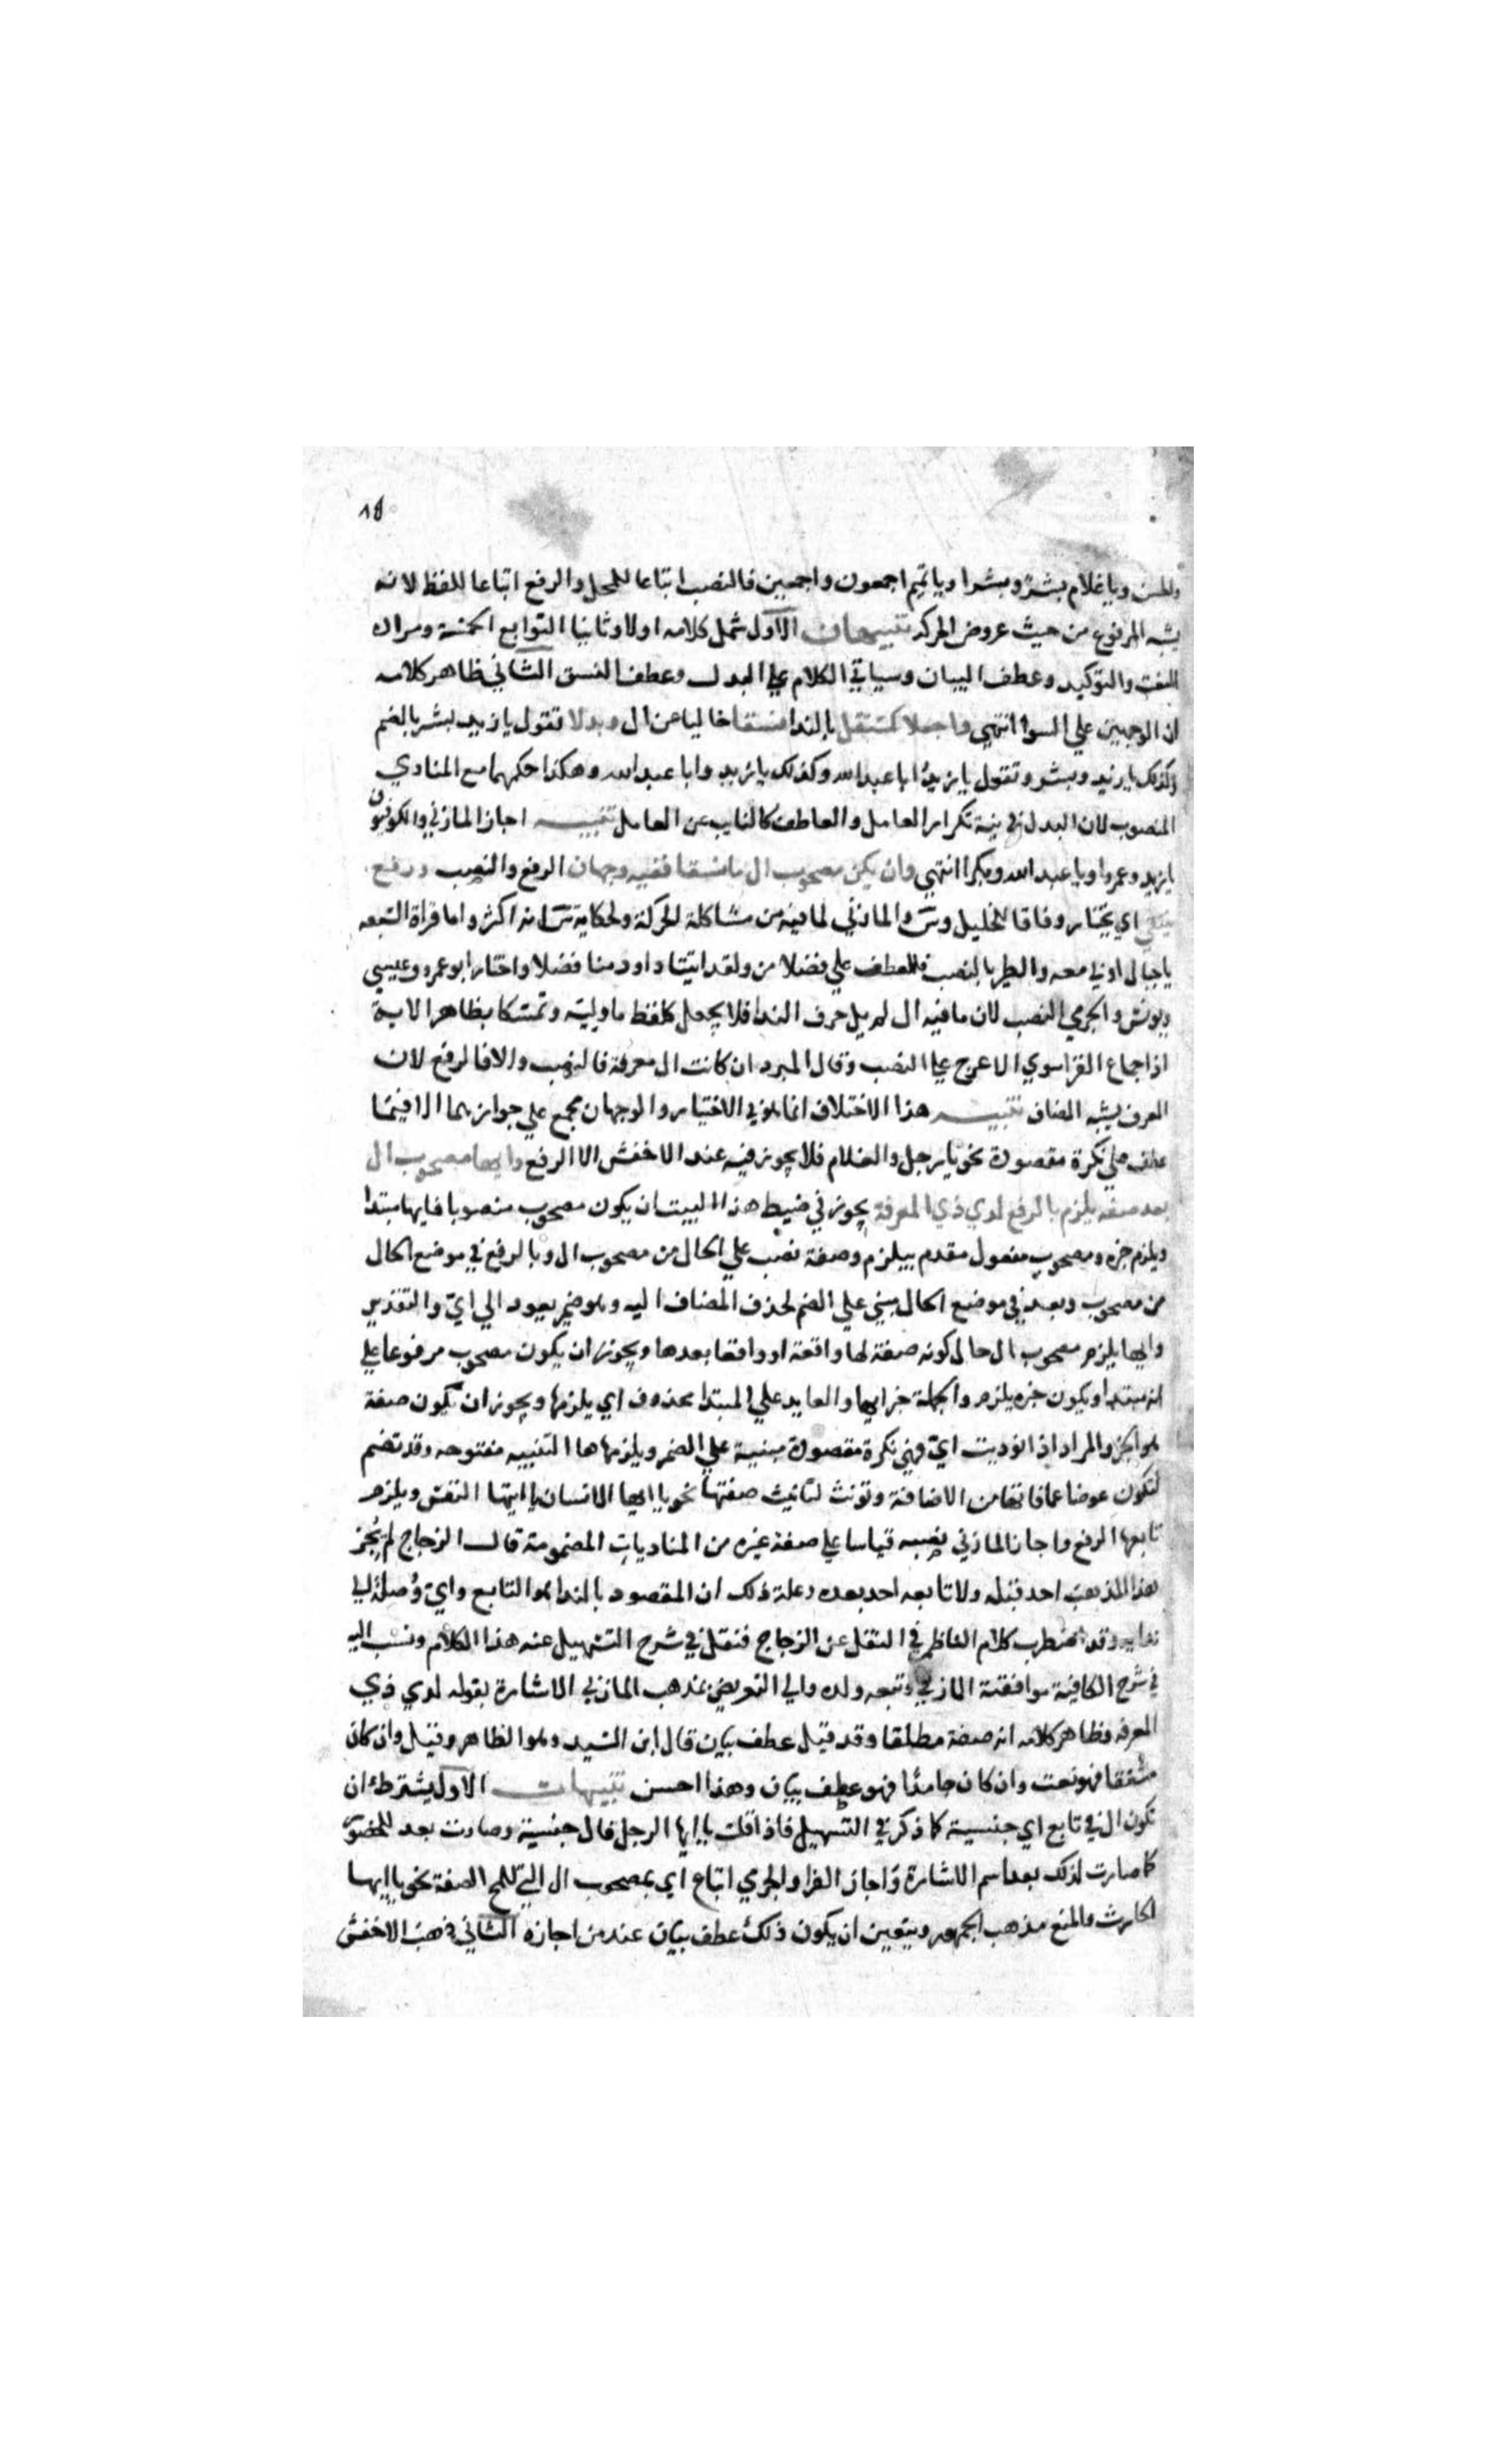 ١٨
والحسن ويا غلام بشر وبشرا ويا تميم اجمعون واجمعين فالنصب اتباعا للمحل والرفع اتباعا للفظ لانه
يشبه المرفوع من حيث عروض الحركة تنبيهان الاول شمل كلامه اولا وثانيا التوابع الخمسة ومراده
النعت والتوكيد وعطف البيان وسياتي الكلام علي البدل وعطف النسق الثاني ظاهر كلامه
ان الوجهين علي السوا انتهي واجعلا كمستقل بالندا منسقا خاليا من ال وبدلا تقول يا زيد بشر بالضم
وكذلك يا زيد وبشر وتقول يا زيد ابا عبد الله وكذلك يا زيد وابا عبد الله وهكذا حكمهما مع المنادي
المنصوب لان البدل في نية تكرار العامل والعاطف كالنايب عن العامل تنبيه اجاز المازني والكوفيون
يا زيد وعمرا ويا عبد الله وبكرا انتهي وان يكن مصحوب ال ما نسقا ففيه وجهان الرفع والنصب ورفع
ينتقي اي يختار وفاقا للخليل وس والمازني لما فيه من مشاكلة الحركة ولحكاية س انه اكثر واما قراة السبعه
يا جبال اوبي معه والطير بالنصب فللعطف علي فضلا من ولقد اتينا داود منا فضلا واختار ابو عمرو وعيسي
ويونس والجرمي النصب لان ما فيه ال لم يل حرف الندا فلا يجعل كلفظ ما وليه وتمسكا بظاهر الاية
اذ اجماع القرا سوي الاعرج علي النصب وقال المبرد ان كانت ال معرفة فالنصب والا فالرفع لان
المعرف يشبه المضاف تنبيه هذا الاختلاف انما هو في الاختيار والوجهان مجمع علي جوازهما الا فيما
عطف علي نكرة مقصودة نحو يا رجل والغلام فلا يجوز فيه عند الاخفش الا الرفع وايها مصحوب ال
بعد صفه يلزم بالرفع لدي ذي المعرفة يجوز في ضبط هذا البيت ان يكون مصحوب منصوبا فايها مبتدا
ويلزم خبره ومصحوب مفعول مقدم بيلزم وصفة نصب علي الحال من مصحوب ال وبالرفع في موضع الحال
من مصحوب وبعد في موضع الحال مبني علي الضم لحذف المضاف اليه وهو ضمير يعود الي اي والتقدير
وايها يلزم مصحوب ال حال كونه صفة لها واقعة او واقعا بعدها ويجوز ان يكون مصحوب مرفوعا علي
انه مبتدا ويكون خبره يلزم والجملة خبر ايها والعايد علي المبتدا محذوف اي يلزمها ويجوز ان تكون صفة
هو الخبر والمراد اذا نوديت اي فهي نكرة مقصودة مبنية علي الضم ويلزمها ها التنبيه مفتوحه وقد تضم
لتكون عوضا عما فاتها من الاضافة وتونث لتانيث صفتها نحو يا ايها الانسان يا ايتها النفس ويلزم
تابعها الرفع واجاز المازني نصبه قياسا علي صفة غيره من المناديات المضمومة قال الزجاج لم يُجز
هذا المذهب احد قبله ولا تابعه احد بعده وعلة ذلك ان المقصود بالندا هو التابع واي وُصلة الي
ندايه وقد اضطرب كلام الناظم في النقل عن الزجاج فنقل في شرح التسهيل عنه هذا الكلام ونسب اليه
في شرح الكافية موافقة المازني وتبعه ولده والي التعريض بمذهب المازني الاشارة بقوله لدي ذي
المعرفه وظاهر كلامه انه صفة مطلقا وقد قيل عطف بيان قال ابن السيد وهو الظاهر وقيل وان كان
مشتقا فهو نعت وان كان جامدًا فهو عطف بيان وهذا احسن تنبيهات الاول يشترط ان
تكون ال في تابع اي جنسية كما ذكر في التسهيل فاذا قلت يا ايها الرجل فال جنسية وصارت بعد للحضور
كما صارت لذلك بعد اسم الاشارة واجاز الفرا والجرمي اتباع اي بمصحوب ال التي للمح الصفة نحو يا ايها
الحارث والمنع مذهب الجمهور ويتعين ان يكون ذلك عطف بيان عند من اجازه الثاني ذهب الاخفش